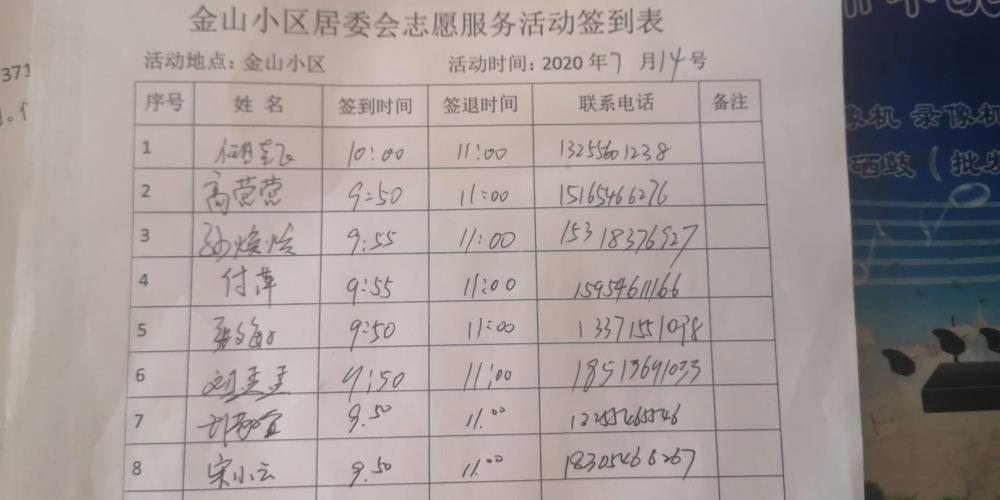 金山小区居委会志愿服务活动签到表
活动地点：金山小区 活动时间：2020年7月14号
371
序号 姓名 签到时间 签退时间 联系电话 备注
1 10:00 11:00 13255601238
2 高营营 9:50 11:00 15165466276
3 9:55 11:00 15318376927
4 付萍 9:55 11:00 15954611166
5 9:50 11:00 13371551098
6 刘孟孟 9:50 11:00 18513691033
7 9.50 11.00 13255465546
8 宋小云 9.50 11.00 18305468267
像机 录像机
硒鼓（批发